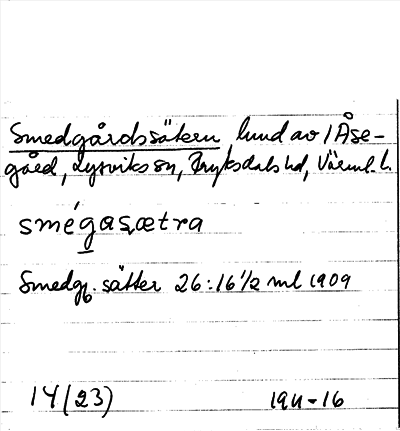 Smedgårdssätern lund av / Åse-
gård, Lysviks sn, Fryksdals hd, Värml. l.
smégasætra
Smedgb. sätter 26:16 1/2 ml 1909
14 (23) 1911-16